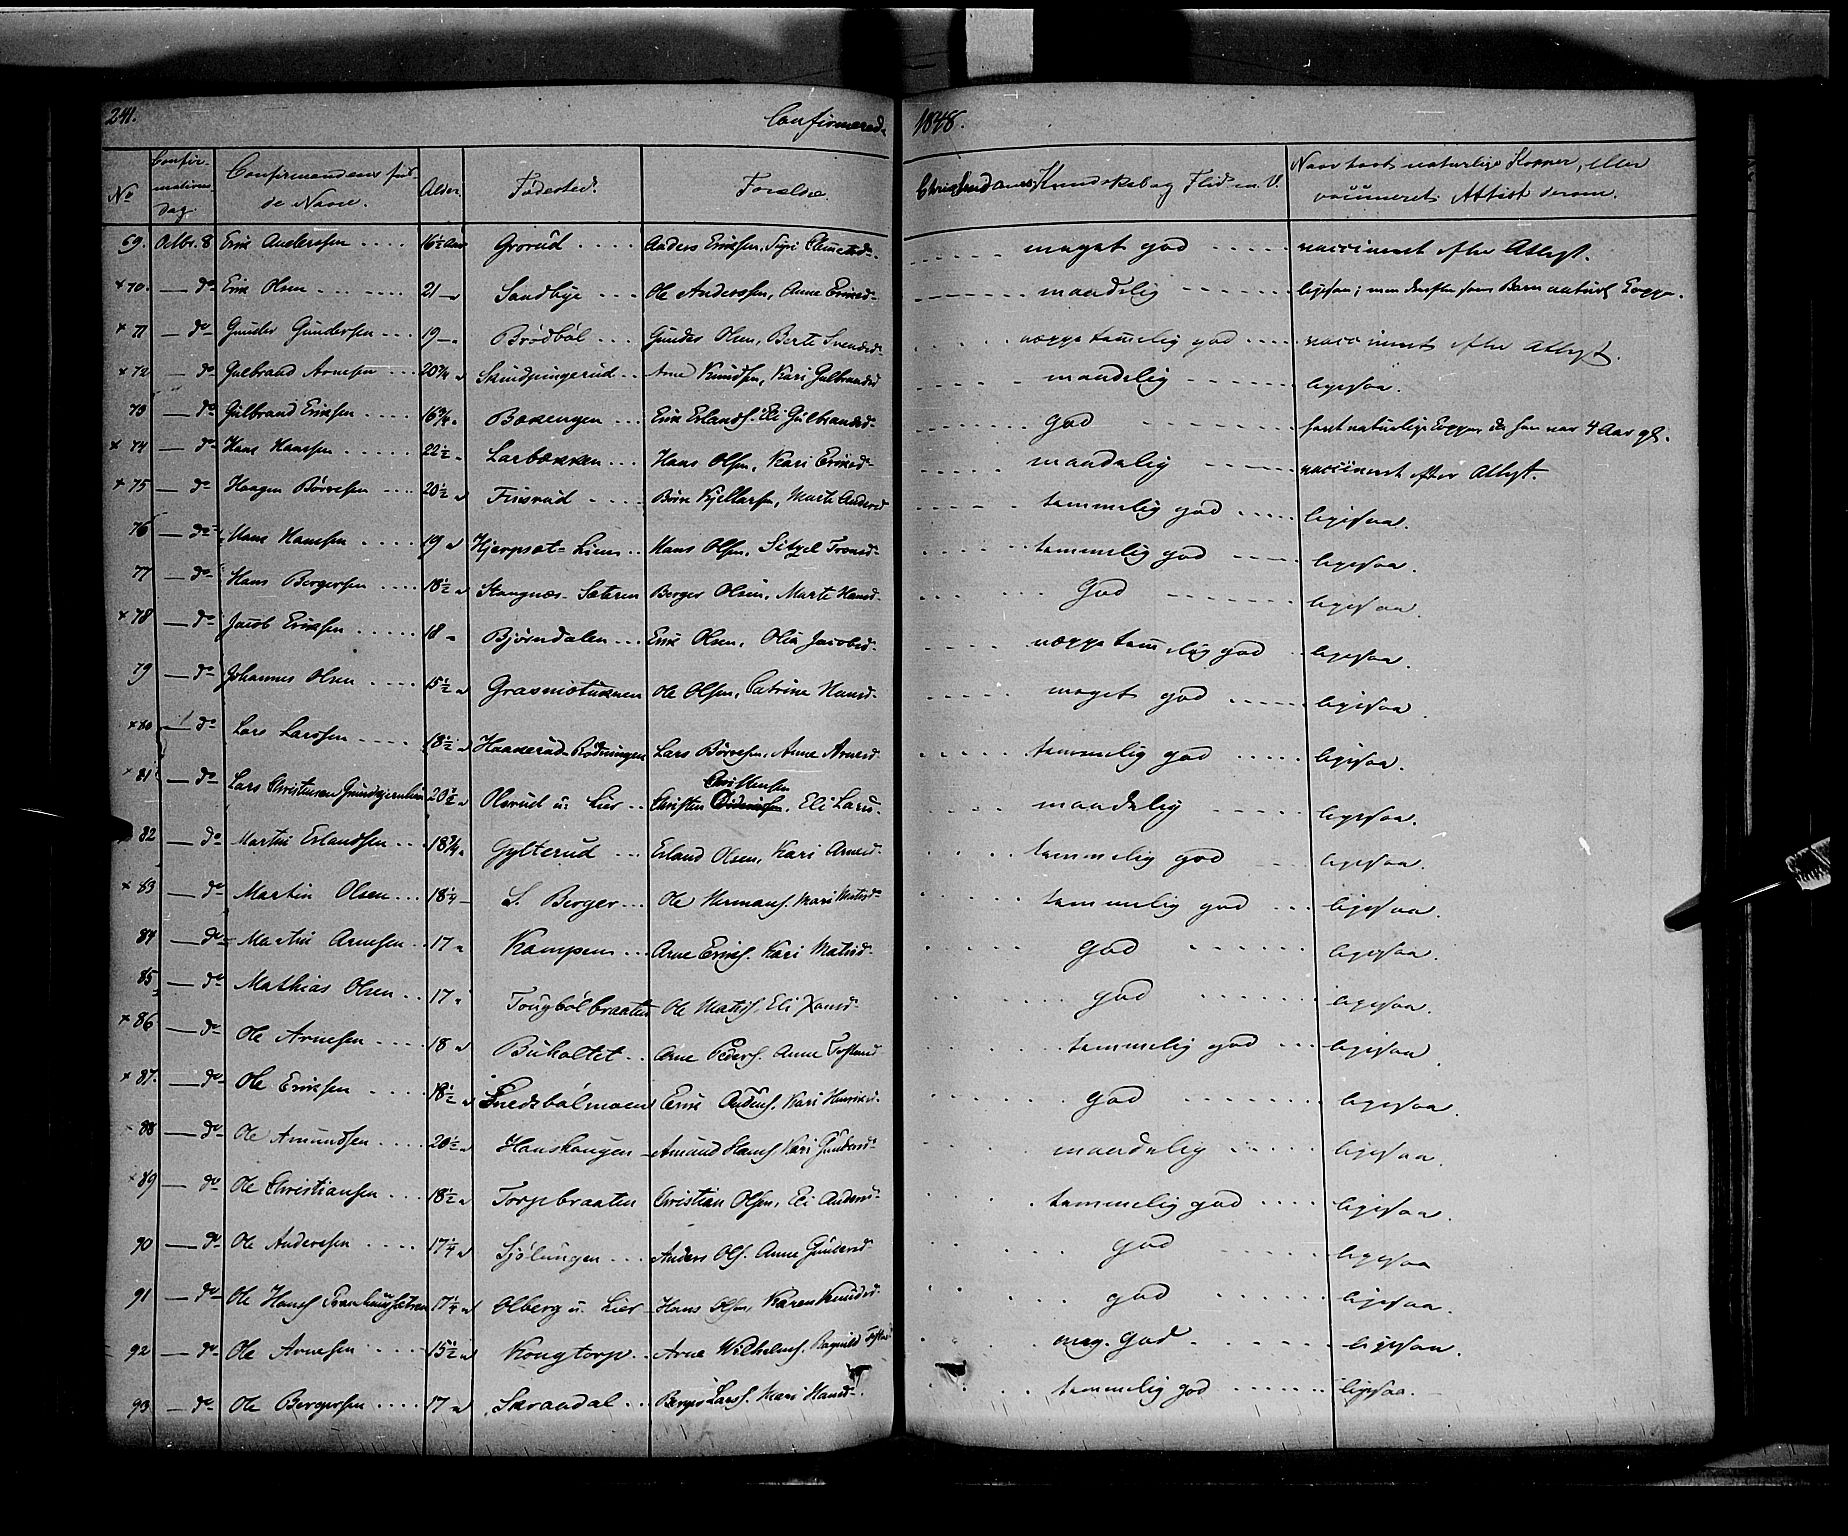 241. Confirmerede 1848.
No Confirmations dag. Confirmandens fulde Navn. Alder. Fødested. Forældre. Christendoms Kundskab og Flid m. V. Naar havt naturlige Kopper, eller vaccineret. Attest derom.
69. Octbr. 8 Erik Anderssen 16½ Aar Grorud Anders Eriksen, Siri meget god vaccineret efter Attest.
+ 70. — do Erik Olsen 21 — Sandbye Ole Anderssen, Anne Eriksd. maadelig ligesaa; men derefter som Barn naturl. Kopper.
+ 71 — do Gunder Gundersen 19 — Brødbøl Gunder Olsen, Berte Svendsd. neppe tammelig god vaccineret efter Attest.
+ 72 — do Gulbrand Arnesen 20¾ Skindpungerud Arne Knudsen, Kari Gulbrandsd. maadelig ligesaa.
73 — do Gulbrand Eriksen 16¾ Bakengen Erik Erlands. Eli Gulbrandsd. god havt naturlige Kopper da han var 4 Aar gl.
+ 74 — do Hans Hanssen 22½ Larbakken Hans Olsen, Kari Eriksd. maadelig vaccineret efter Attest.
+ 75 — do Haagen Børresen 20½ Finsrud Børre Kjellarsen, Marte Andersd. temmelig god ligesaa.
76 — do Hans Hanssen 19 Hjerpsæt-Liens Hans Olsen, Sitzel Tronsd. temmelig god ligesaa.
77 — do Hans Bergersen 18½ Stangnæs-Sæteren Berger Olsen, Marte Hansd. God ligesaa.
+ 78 — do Jacob Eriksen 18 Bjørndalen Erik Olsen, Olia Jacobsd. neppe temmelig god ligesaa.
79 — do Johannes Olsen 15½ Grasmotuknen Ole Olsen, Catrine Hansd. meget god ligesaa.
+ 80 — do Lars Larssen 18½ Haakerud-Rødningen Lars Børresen, Anne Arnesd. temmelig god ligesaa.
+ 81 — do Lars Christensen 20½ Olsrud u. Lier Christen Christensen, Eli Larsd. maadelig ligesaa.
82 — do Martin Erlandsen 18¾ Gylterud Erland Olsen, Kari Arnesd. temmelig god ligesaa.
+ 83 — do Martin Olsen 18¼ S. Berger Ole Hermans. Kari Matisd. temmelig god ligesaa.
84 — do Martin Arnesen 17 Kampen Arne Eriks. Kari Matisd. god ligesaa.
85 — do Mathias Olsen 17 Tougbølbraaten Ole Matis. Eli Hansd. god ligesaa.
+ 86 — do Ole Arnesen 18 Buholtet Arne Peders. Anne Tostensd. temmelig god ligesaa.
+ 87. — do Ole Eriksen 18½ Fredsbølmoen Erik Anders. Kari Henriksd. god ligesaa.
88 — do Ole Amundsen 20½ Hanshaugen Amund Hans. Kari Gundersd. maadelig ligesaa.
+ 89 — do Ole Christiansen 18½ Torpbraaten Christian Olsen, Eli Andersd. temmelig god ligesaa.
90 — do Ole Anderssen 17¼ Sjølungen Anders Ols. Anne Gundersd. god ligesaa
91 — do Ole Hans. 17¼ Olberg u. Lier Hans Olsen, Karen Knudsd. god ligesaa.
92 — do Ole Arnesen 15½ Kongtorp Arne Wilhelms. Ragnild meg. God ligesaa.
93 — do Ole Bergersen 17 Skrandal Berger Lars. Mari Hansd. temmelig god ligesaa.